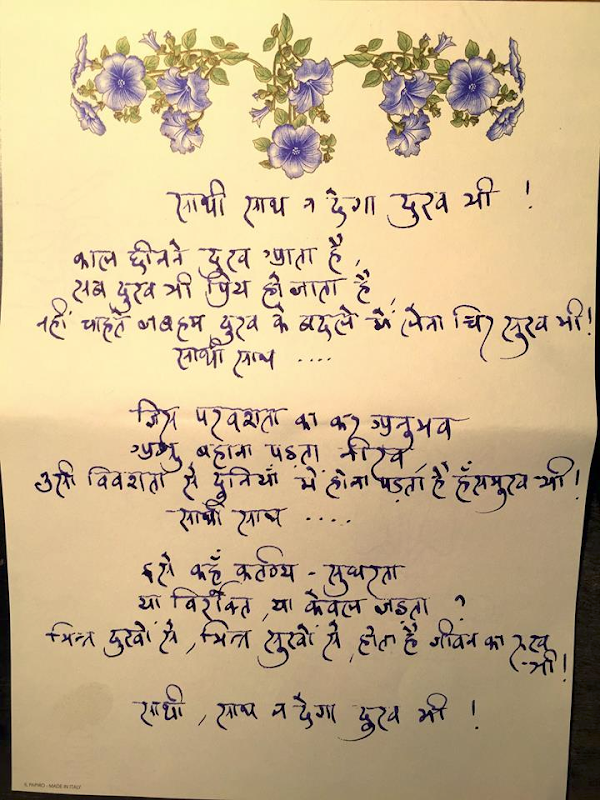 साथी साथ न देगा दुख भी !
काल छीनने दुख आता है,
सब दुख भी प्रिय हो जाता है,
नहीं चाहते जब हम दुख के बदले में लेना चिर सुख भी !
साथी साथ ....
जिस परवशता का कर अनुभव
अश्रु बहाना पड़ता नीरव
उसी विवशता से दुनियाँ में होना पड़ता है हँसमुख भी !
साथी साथ ....
इसे कहूँ कर्तव्य - सुघरता
या विरक्ति, या केवल जड़ता ?
भिन्न दुखों से, भिन्न सुखों से, होता है जीवन का रुख
भी !
साथी, साथ न देगा दुख भी !
IL PAPIRO - MADE IN ITALY